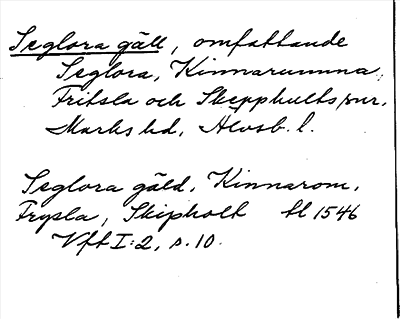 Seglora gäll, omfattande
Seglora, Kinnarumma,
Fritsla och Skepphults snr,
Marks hd, Älvsb. l.
Seglora gäld, Kinnarom,
Frysla, Skipholt tl 1546
Vft I:2, s. 10.